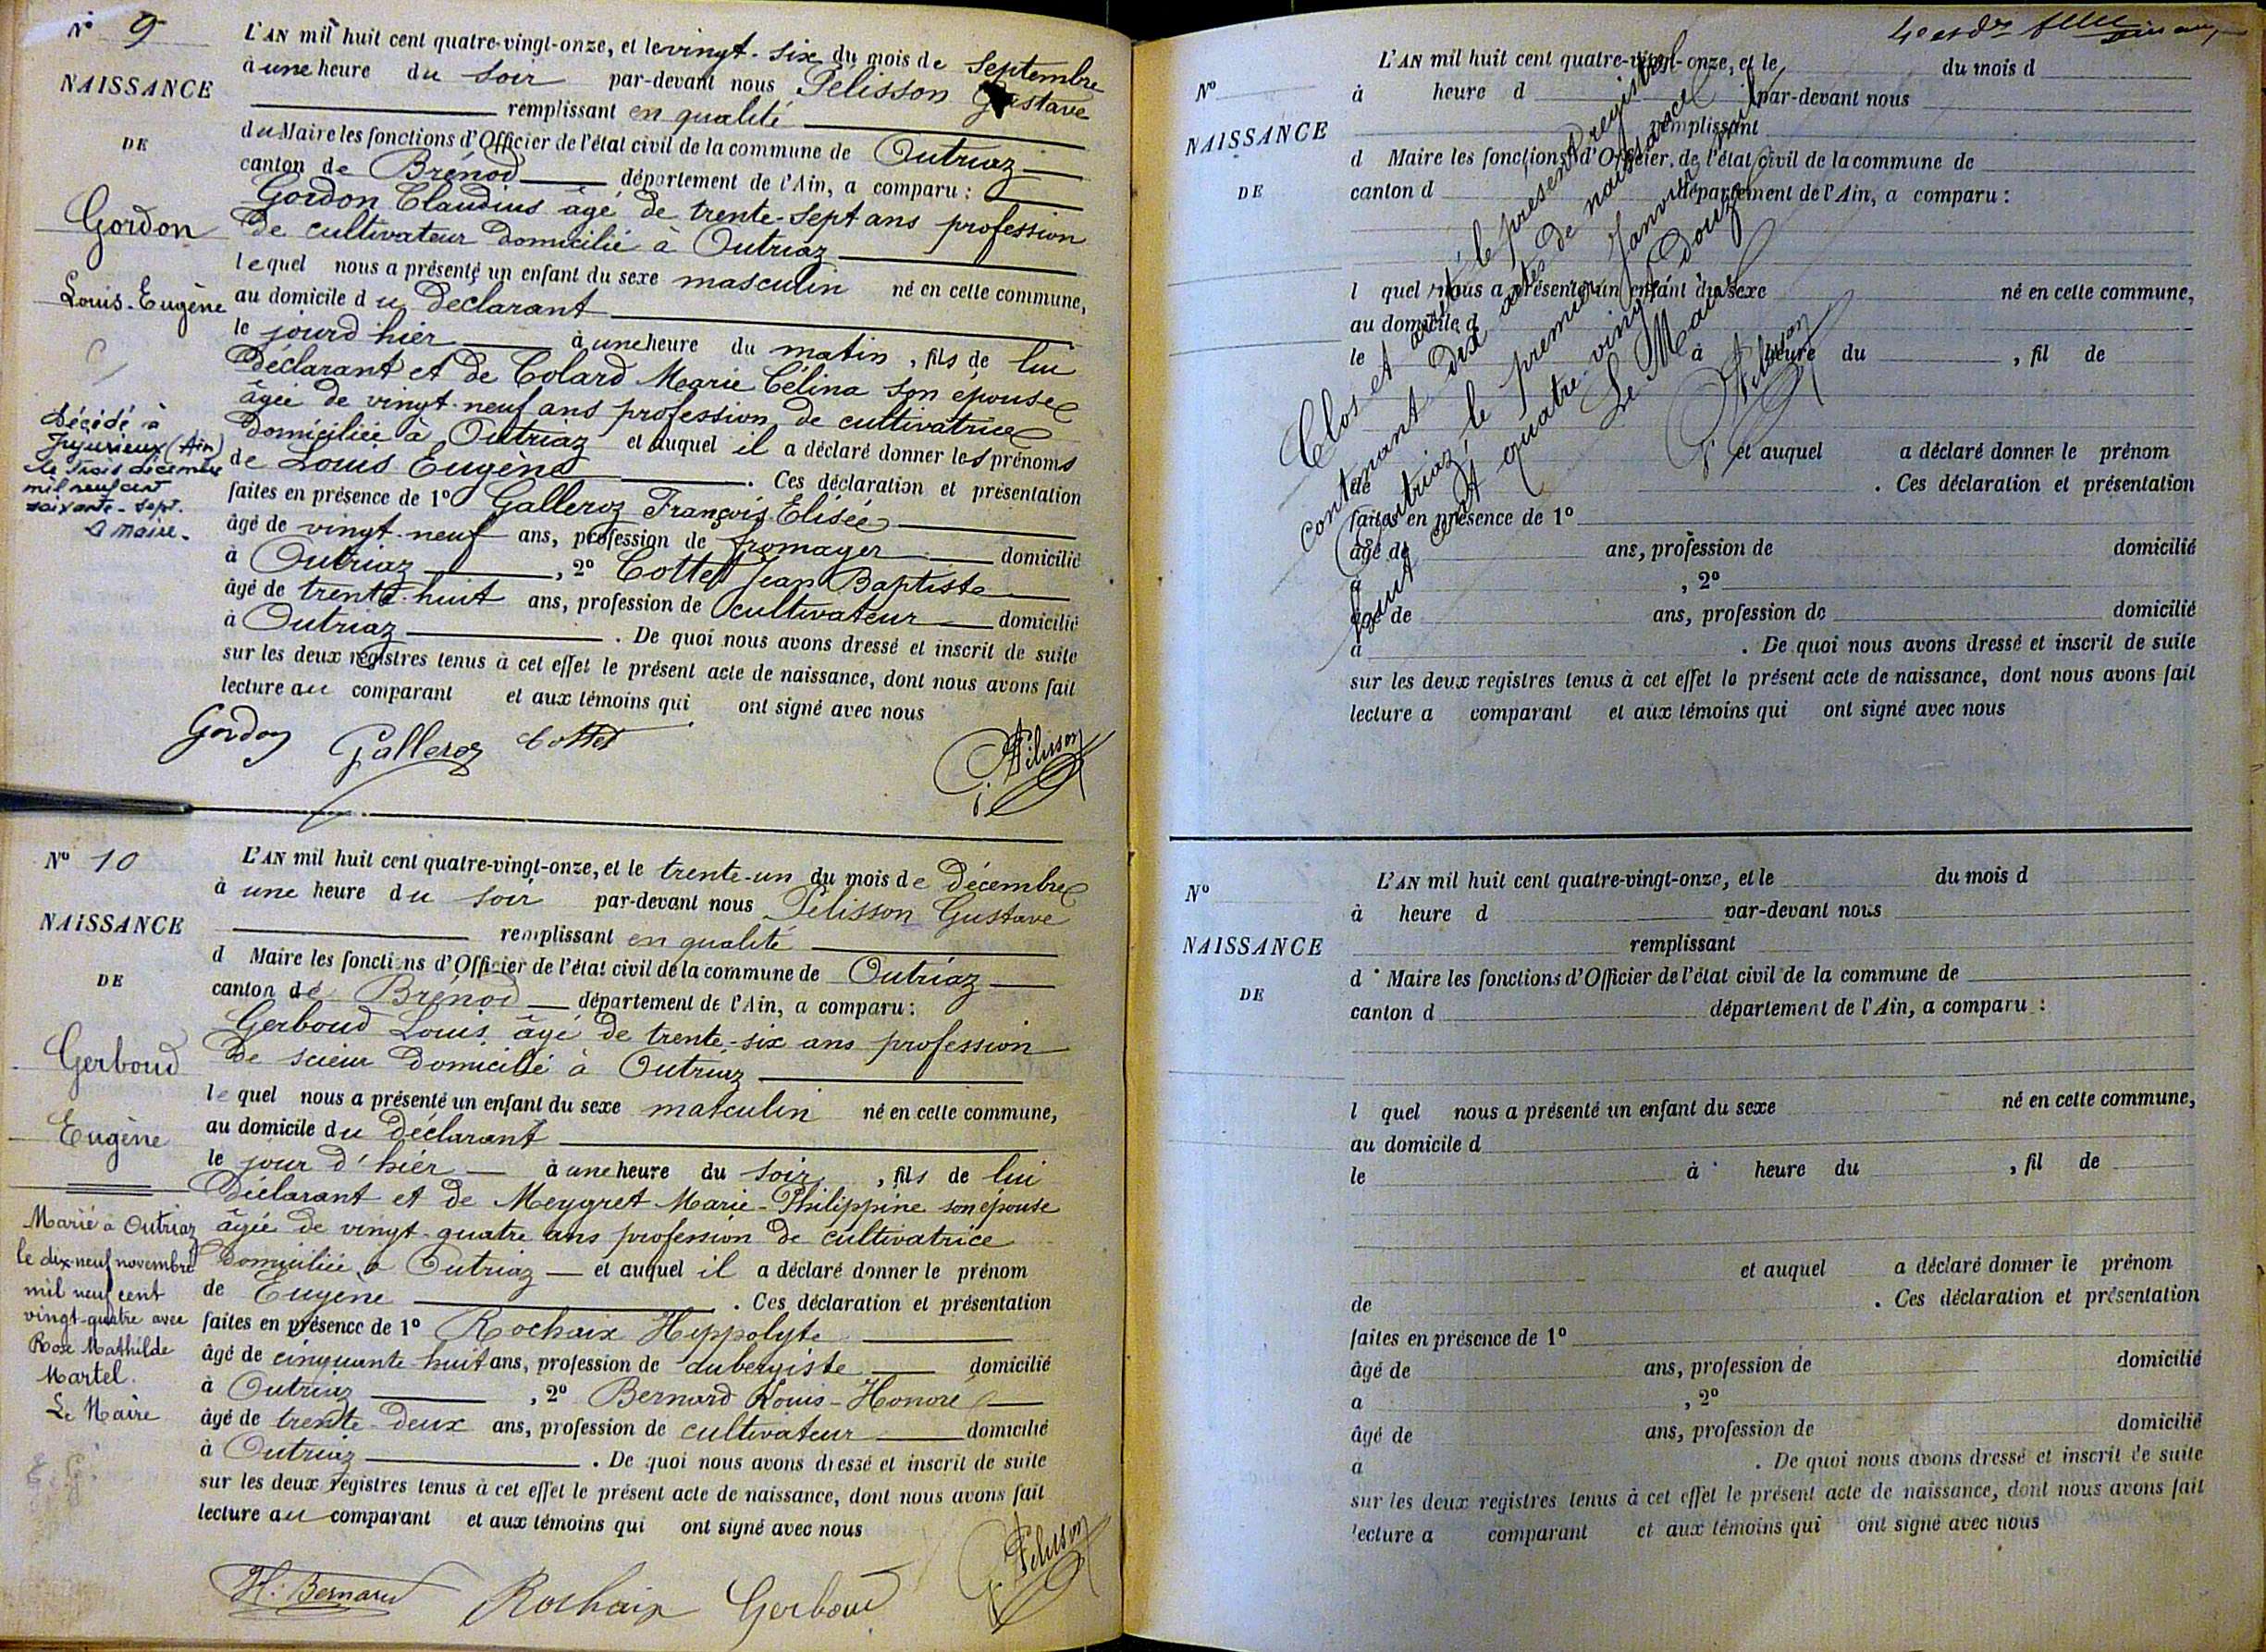 N° 9
NAISSANCE
DE
Gordon
Louis-Eugène
Décédé à
Jujurieux (Ain)
le trois décembre
mil neuf cent
soixante-sept.
Le maire.
L'AN mil huit cent quatre-vingt-onze, et le vingt-six du mois de Septembre
à une heure du soir par-devant nous Pélisson Gustave
remplissant en qualité
du Maire les fonctions d'Officier de l'état civil de la commune de Outriaz
canton de Brénod département de l'Ain, a comparu :
Gordon Claudius âgé de trente-sept ans profession
de cultivateur domicilié à Outriaz
lequel nous a présenté un enfant du sexe masculin né en cette commune,
au domicile du déclarant
le jourd'hier à une heure du matin, fils de lui
déclarant et de Colard Marie Célina son épouse
âgée de vingt-neuf ans profession de cultivatrice
domiciliée à Outriaz et auquel il a déclaré donner les prénoms
de Louis Eugène. Ces déclaration et présentation
faites en présence de 1° Galleroz François Elisée
âgé de vingt-neuf ans, profession de fromager domicilié
à Outriaz, 2° Cottet Jean Baptiste
âgé de trente-huit ans, profession de cultivateur domicilié
à Outriaz. De quoi nous avons dressé et inscrit de suite
sur les deux registres tenus à cet effet le présent acte de naissance, dont nous avons fait
lecture au comparant et aux témoins qui ont signé avec nous
Gordon Galleroz Cottet G. Pélisson
N° 10
NAISSANCE
DE
Gerboud
Eugène
Marié à Outriaz
le dix-neuf novembre
mil neuf cent
vingt-quatre avec
Rose Mathilde
Martel.
Le Maire
L'AN mil huit cent quatre-vingt-onze, et le trente-un du mois de Décembre
à une heure du soir par-devant nous Pélisson Gustave
remplissant en qualité
d Maire les fonctions d'Officier de l'état civil de la commune de Outriaz
canton de Brénod département de l'Ain, a comparu :
Gerboud Louis, âgé de trente-six ans profession
de scieur domicilié à Outriaz
lequel nous a présenté un enfant du sexe masculin né en cette commune,
au domicile du déclarant
le jour d'hier à une heure du soir, fils de lui
déclarant et de Meygret Marie-Philippine son épouse
âgée de vingt-quatre ans profession de cultivatrice
domiciliée à Outriaz et auquel il a déclaré donner le prénom
de Eugène. Ces déclaration et présentation
faites en présence de 1° Rochaix Hippolyte
âgé de cinquante-huit ans, profession de aubergiste domicilié
à Outriaz, 2° Bernard Louis-Honoré
âgé de trente-deux ans, profession de cultivateur domicilié
à Outriaz. De quoi nous avons dressé et inscrit de suite
sur les deux registres tenus à cet effet le présent acte de naissance, dont nous avons fait
lecture au comparant et aux témoins qui ont signé avec nous
H. Bernard Rochaix Gerboud G. Pélisson
N°
NAISSANCE
DE
L'AN mil huit cent quatre-vingt-onze, et le du mois d
à heure d par-devant nous
remplissant
d Maire les fonctions d'Officier de l'état civil de la commune de
canton d département de l'Ain, a comparu :
l quel nous a présenté un enfant du sexe né en cette commune,
au domicile d
le à heure du , fil de
et auquel a déclaré donner le prénom
de . Ces déclaration et présentation
faites en présence de 1°
âgé de ans, profession de domicilié
à , 2°
âgé de ans, profession de domicilié
à . De quoi nous avons dressé et inscrit de suite
sur les deux registres tenus à cet effet le présent acte de naissance, dont nous avons fait
lecture a comparant et aux témoins qui ont signé avec nous
Clos et arrêté le présent registre
contenant dix actes de naissance
Outriaz, le premier Janvier mil
huit cent quatre-vingt douze
Le Maire
G. Pélisson
N°
NAISSANCE
DE
L'AN mil huit cent quatre-vingt-onze, et le du mois d
à heure d par-devant nous
remplissant
d Maire les fonctions d'Officier de l'état civil de la commune de
canton d département de l'Ain, a comparu :
l quel nous a présenté un enfant du sexe né en cette commune,
au domicile d
le à heure du , fil de
et auquel a déclaré donner le prénom
de . Ces déclaration et présentation
faites en présence de 1°
âgé de ans, profession de domicilié
a , 2°
âgé de ans, profession de domicilié
à . De quoi nous avons dressé et inscrit de suite
sur les deux registres tenus à cet effet le présent acte de naissance, dont nous avons fait
lecture a comparant et aux témoins qui ont signé avec nous